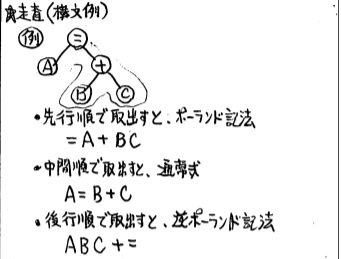 走査(構文例)
例
=
A
+
B
C
・先行順で取出すと、ポーランド記法
=A+BC
・中間順で取出すと、通常式
A=B+C
・後行順で取出すと、逆ポーランド記法
ABC+=